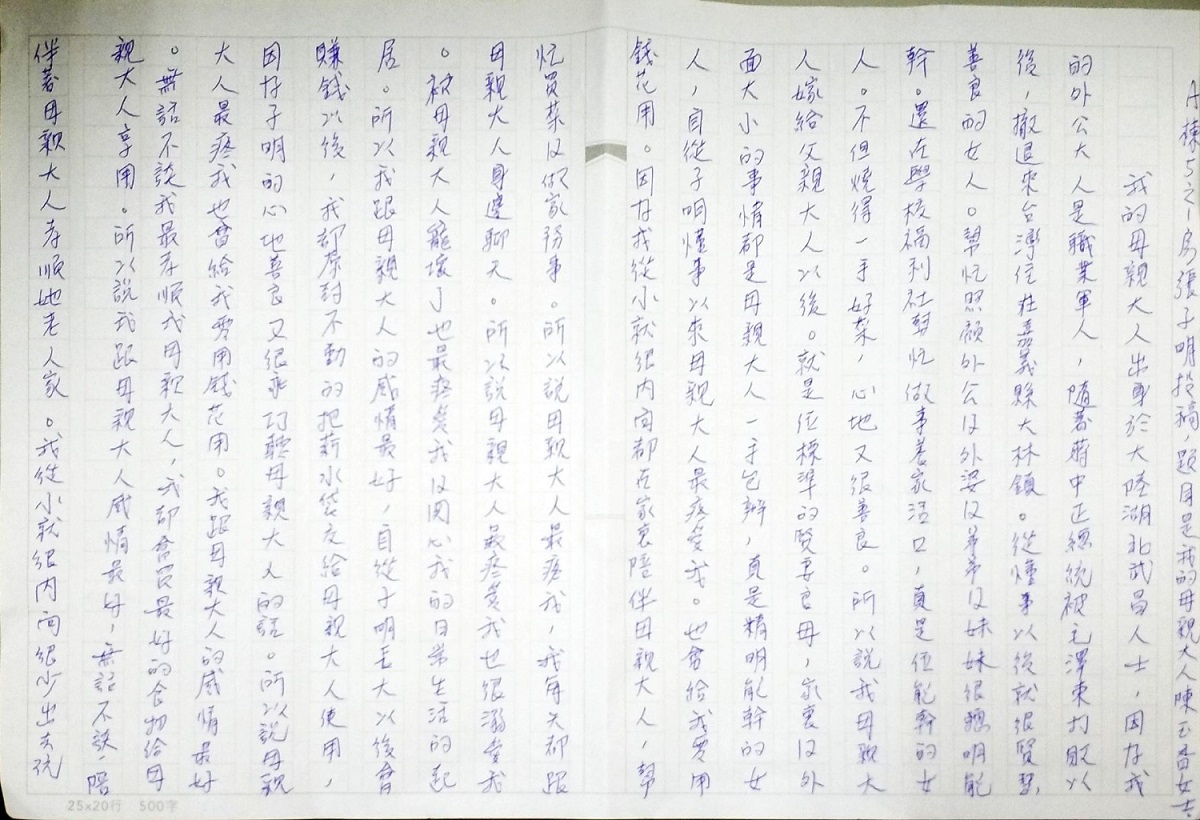 A棟5之1房張子明投稿，題目是我的母親大人陳玉香女士。
我的母親大人出身於大陸湖北武昌人士，因為我
的外公大人是職業軍人，隨著蔣中正總統被毛澤東打敗以
後，撤退來台灣住在嘉義縣大林鎮。從懂事以後就很賢慧
善良的女人。幫忙照顧外公及外婆及弟弟及妹妹很聰明能
幹。還在學校福利社幫忙做事養家活口，真是位能幹的女
人。不但燒得一手好菜，心地又很善良。所以說我母親大
人嫁給父親大人以後。就是位標準的賢妻良母，家裏及外
面大小的事情都是母親大人一手包辦，真是精明能幹的女
人，自從子明懂事以來母親大人最疼愛我。也會給我零用
錢花用。因為我從小就很內向都在家裏陪伴母親大人，幫
忙買菜及做家務事。所以說母親大人最疼我，我每天都跟
母親大人身邊聊天。所以說母親大人最疼愛我也很溺愛我
。被母親大人寵壞了也最疼愛我及關心我的日常生活的起
居。所以我跟母親大人的感情最好，自從子明長大以後會
賺錢以後，我都原封不動的把薪水袋交給母親大人使用，
因為子明的心地善良又很乖巧聽母親大人的話。所以說母親
大人最疼我也會給我零用錢花用。我跟母親大人的感情最好
。無話不談我最孝順我母親大人，我都會買最好的食物給母
親大人享用。所以說我跟母親大人感情最好，無話不談，陪
伴著母親大人孝順她老人家。我從小就很內向很少出去玩
25x20行 500字